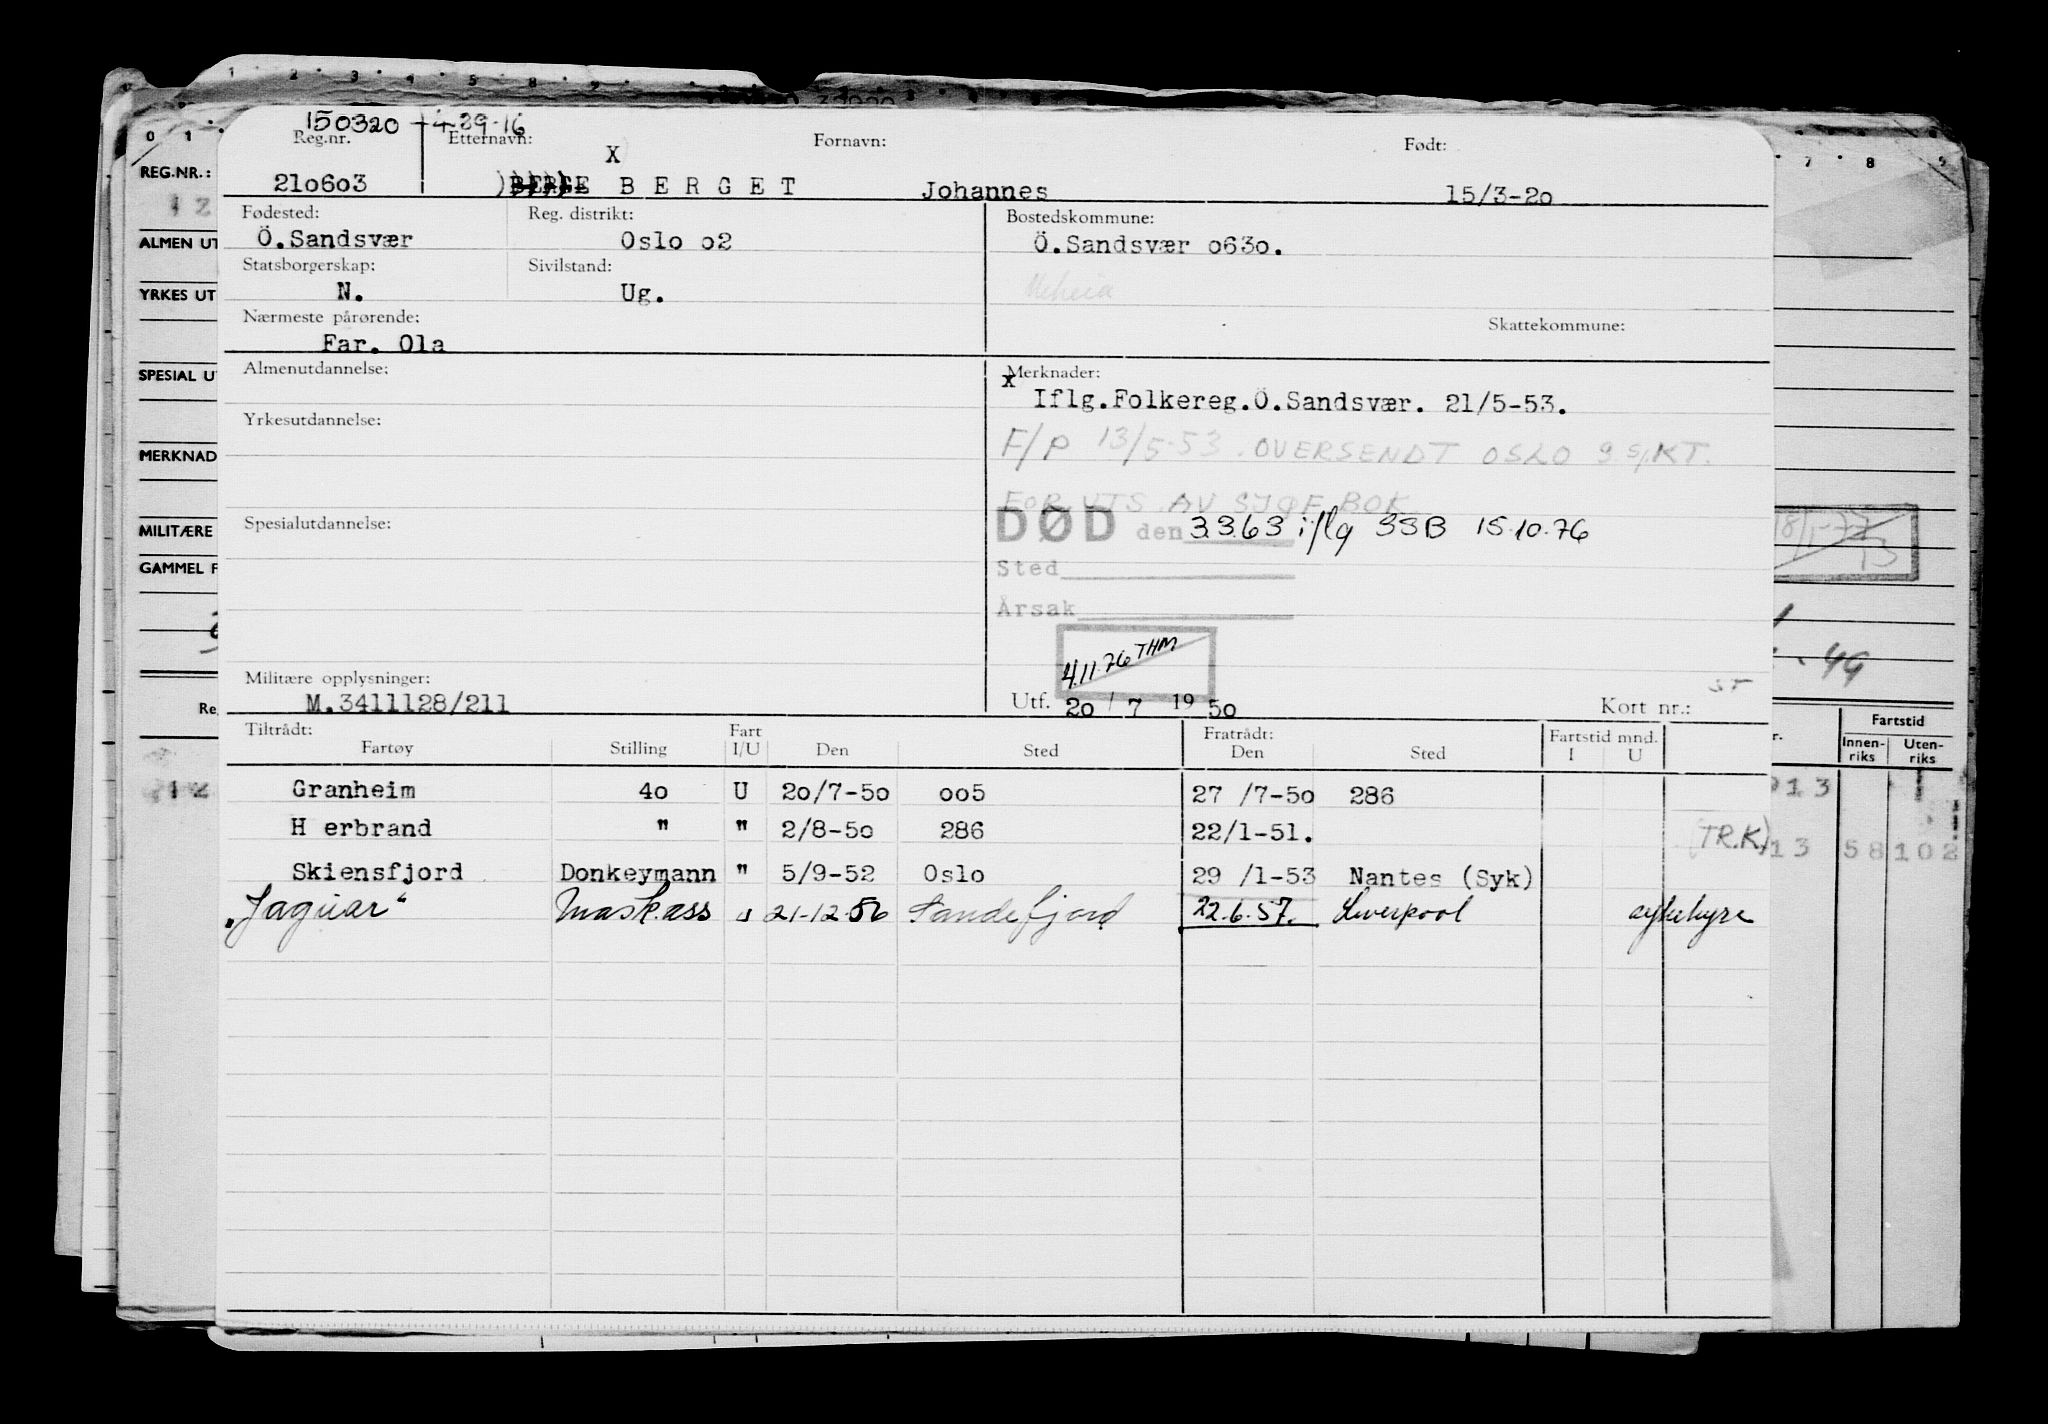 1 2 3 4 5 8 9
0 1
7 8 9
150320 +4-29-16
Reg.nr. Etternavn: Fornavn: Født:
X
210603 B E R G E T Johannes 15/3-20
Fødested: Reg. distrikt: Bostedskommune:
Ö.Sandsvær Oslo o2 Ö.Sandsvær o63o.
Statsborgerskap: Sivilstand:
N. Ug.
Nærmeste pårørende: Skattekommune:
Far. Ola
Almenutdannelse: Merknader:
x Iflg.Folkereg.Ö.Sandsvær. 21/5-53.
Yrkesutdannelse:
F/P 13/5-53. OVERSENDT OSLO S.KT.
FOR UTS. AV SJØF.BOK.
Spesialutdannelse: DØD den 3.3.63 iflg SSB 15.10.76
Sted
Årsak
4.11.76 THM
Militære opplysninger:
M.3411128/211
Utf. 20 / 7 19 50 Kort nr.:
ST
Tiltrådt: Fart Fratrådt: Fartstid mnd.
Fartøy Stilling I/U Den Sted Den Sted I U
Granheim 4o U 2o/7-5o oo5 27 /7-5o 286
H erbrand " " 2/8-5o 286 22/1-51. (TR.K)
Skiensfjord Donkeymann " 5/9-52 Oslo 29 /1-53 Nantes (Syk)
"Jaguar" Maskass u 21-12-56 Sandefjord 22.6.57. Liverpool sykehyre
REG.NR.:
12
ALMEN UT
YRKES UT
SPESIAL UT
MERKNAD
MILITÆRE
GAMMEL F
Re
12
18/1-77
49
Fartstid
Innen-riks Uten-riks
913 1
13 58 102